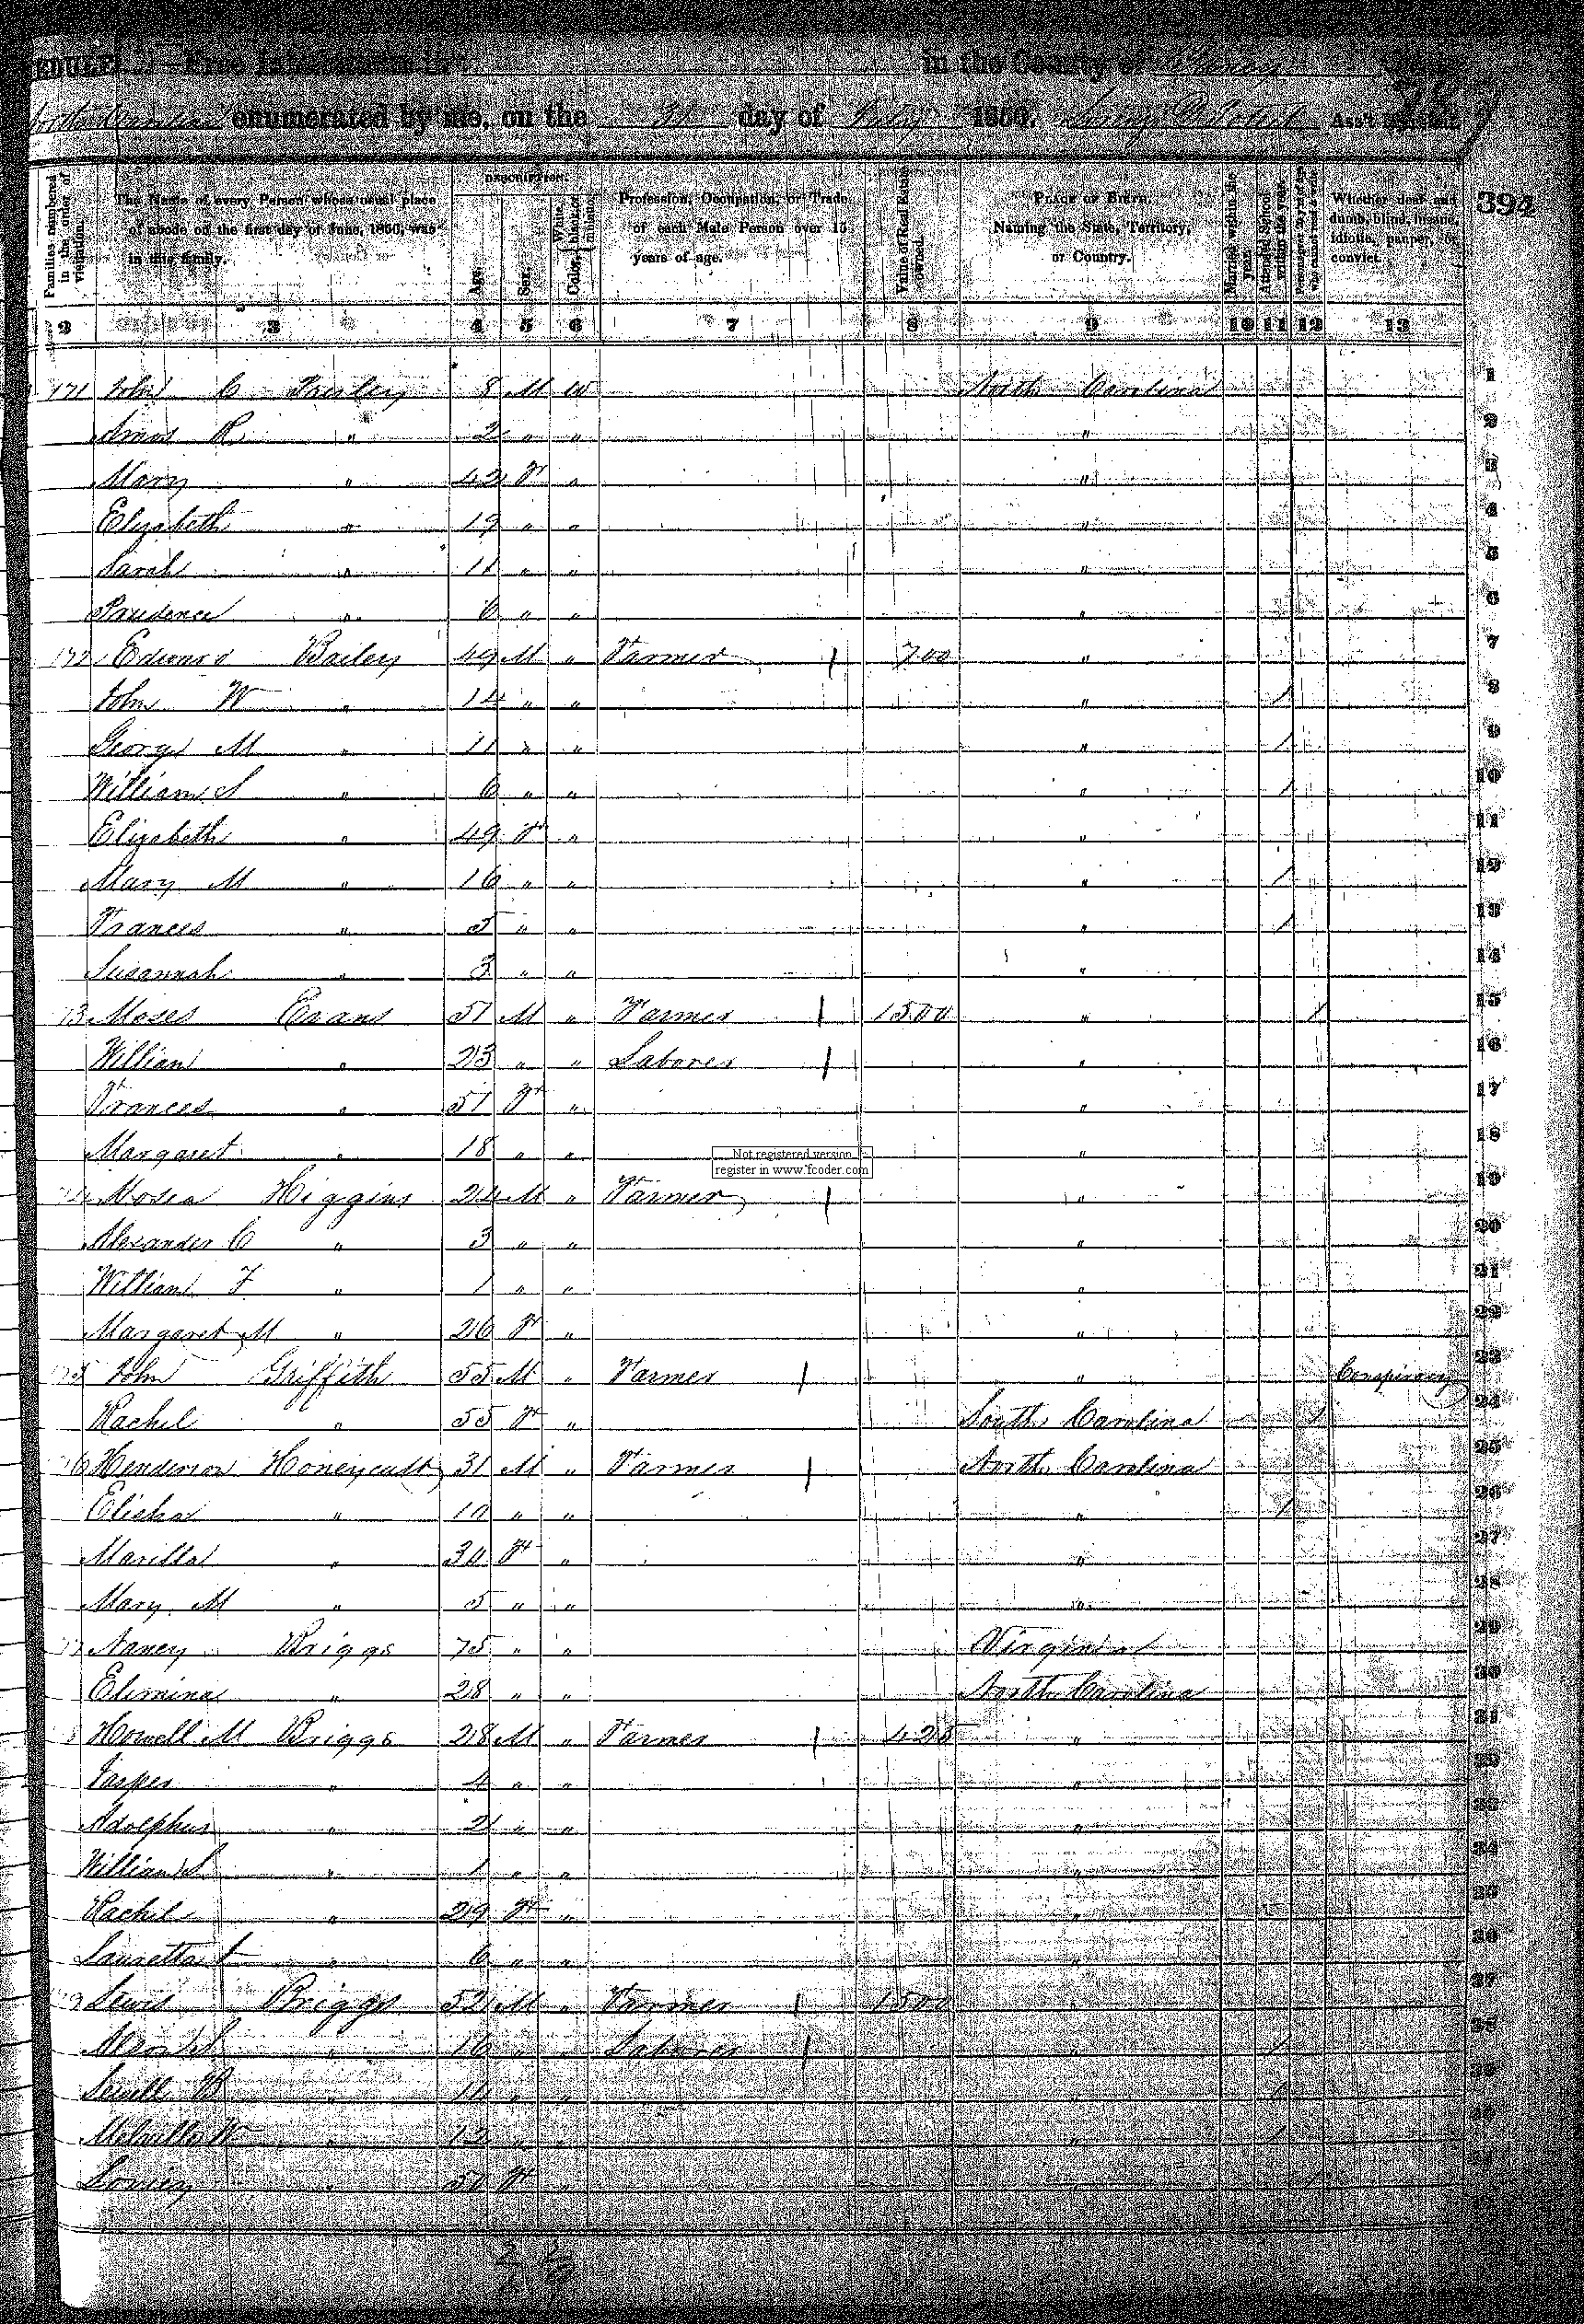 in the County of Yancey
enumerated by me, on the day of 1850. Ass't
394
Families numbered in the order of visitation.
The Name of every Person whose usual place of abode on the first day of June, 1850, was in this family.
DESCRIPTION.
Age.
Sex.
Color, White, black, or mulatto.
Profession, Occupation, or Trade of each Male Person over 15 years of age.
Value of Real Estate owned.
PLACE OF BIRTH. Naming the State, Territory, or Country.
Married within the year.
Attended School within the year.
Whether deaf and dumb, blind, insane, idiotic, pauper, or convict.
2 3 4 5 6 7 8 9 10 11 12 13
171 John C 8 M W North Carolina 1
Amos R " 2 " " " 2
Mary " 42 F " " 3
Elizabeth " 19 " " " 4
Sarah " 11 " " " 5
Prudence " 6 " " " 6
172 Edward Bailey 49 M " Farmer 700 " 7
John W " 14 " " " 1 8
George M " 11 " " " 1 9
William S " 6 " " " 1 10
Elizabeth " 49 F " " 11
Mary M " 16 " " " 1 12
Frances " 5 " " " 1 13
Susannah " 3 " " " 14
73 Moses Evans 51 M " Farmer 1500 " 1 15
William " 23 " " Laborer " 16
Frances " 51 F " " 17
Margaret " 18 " " " 18
Not registered version
register in www.fcoder.com
74 Hosea Higgins 24 M " Farmer " 19
Alexander C " 3 " " " 20
William F " 1 " " " 21
Margaret M " 26 F " " 22
175 John Griffith 55 M " Farmer " Conspiracy 23
Rachel " 55 F " South Carolina 1 24
76 Henderson Honeycutt 31 M " Farmer North Carolina 25
Elisha " 10 " " " 1 26
Marilla " 30 F " " 27
Mary M " 5 " " " 28
77 Nancy Briggs 75 " " Virginia 29
Elimina " 28 " " North Carolina 30
8 Howell M Briggs 28 M " Farmer 425 " 31
Jasper " 4 " " "
Adolphus " 2 " " "
William S " 1 " " " 34
Rachel " 29 F " "
Lauretta " 6 " " "
9 Lewis Briggs 52 M " Farmer 1500 " 37
" 16 " " Laborer " 1
Sewell B " 14 " " " 1
Melville W " 12 " " " 1
" 50 F " "